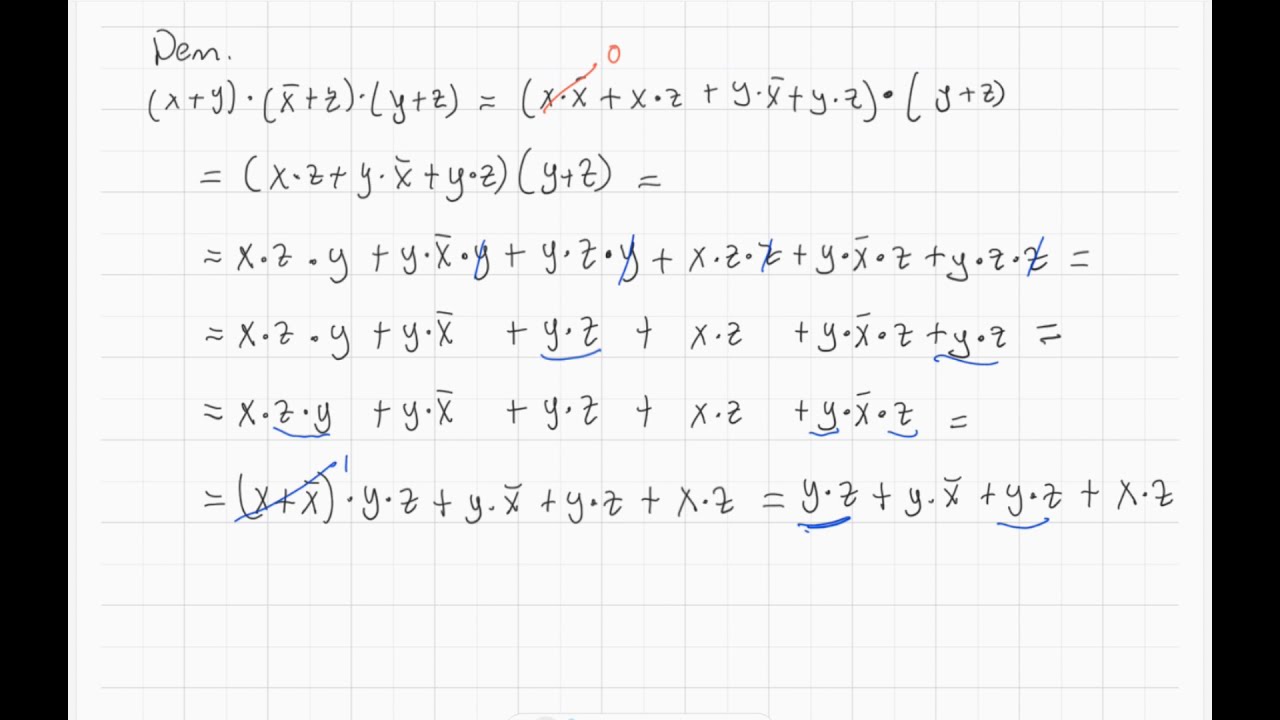 Dem.
0
(x+y)·(x̄+z)·(y+z) = (x·x̄ + x·z + y·x̄ + y·z)·(y+z)
= (x·z + y·x̄ + y·z)(y+z) =
= x·z·y + y·x̄·y + y·z·y + x·z·z + y·x̄·z + y·z·z =
= x·z·y + y·x̄ + y·z + x·z + y·x̄·z + y·z =
= x·z·y + y·x̄ + y·z + x·z + y·x̄·z =
1
= (x+x̄)·y·z + y·x̄ + y·z + x·z = y·z + y·x̄ + y·z + x·z